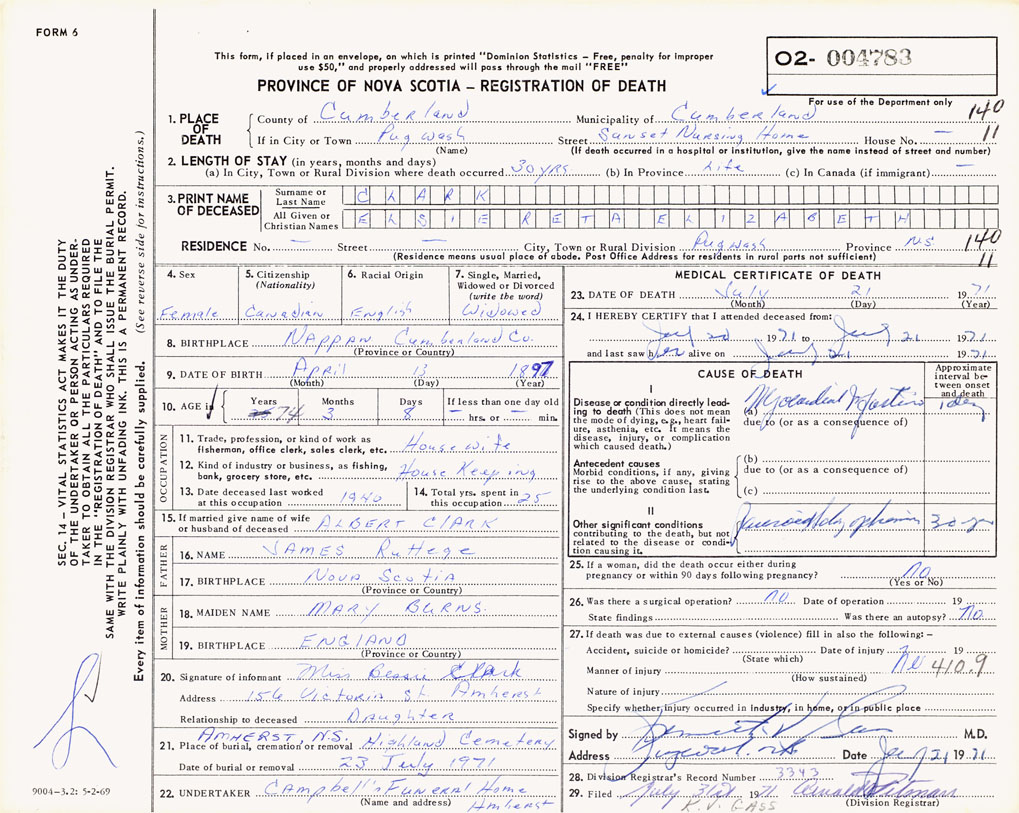 FORM 6
This form, if placed in an envelope, on which is printed "Dominion Statistics – Free, penalty for improper
use $50," and properly addressed will pass through the mail "FREE"
PROVINCE OF NOVA SCOTIA – REGISTRATION OF DEATH
02- 004783
For use of the Department only
140
11
1. PLACE OF DEATH
County of Cumberland Municipality of Cumberland
If in City or Town Pugwash Street Sunset Nursing Home House No. —
(Name) (If death occurred in a hospital or institution, give the name instead of street and number)
2. LENGTH OF STAY (in years, months and days)
(a) In City, Town or Rural Division where death occurred 30 yrs (b) In Province Life (c) In Canada (if immigrant) —
3. PRINT NAME OF DECEASED
Surname or Last Name CLARK
All Given or Christian Names ELSIE RETA ELIZABETH
RESIDENCE No. — Street — City, Town or Rural Division Pugwash Province NS
140
11
(Residence means usual place of abode. Post Office Address for residents in rural parts not sufficient)
4. Sex Female
5. Citizenship (Nationality) Canadian
6. Racial Origin English
7. Single, Married, Widowed or Divorced (write the word) Widowed
8. BIRTHPLACE NAPPAN Cumberland Co.
(Province or Country)
9. DATE OF BIRTH April 13 1897
(Month) (Day) (Year)
10. AGE in Years 74 Months 3 Days 8 If less than one day old — hrs. or — min.
OCCUPATION
11. Trade, profession, or kind of work as fisherman, office clerk, sales clerk, etc. House wife
12. Kind of industry or business, as fishing, bank, grocery store, etc. House Keeping
13. Date deceased last worked at this occupation 1940
14. Total yrs. spent in this occupation 25
15. If married give name of wife or husband of deceased ALBERT CLARK
FATHER
16. NAME JAMES Ruttege
17. BIRTHPLACE Nova Scotia
(Province or Country)
MOTHER
18. MAIDEN NAME MARY BURNS
19. BIRTHPLACE ENGLAND
(Province or Country)
20. Signature of informant Miss Bessie Clark
Address 156 Victoria St. Amherst
Relationship to deceased Daughter
AMHERST, N.S.
21. Place of burial, cremation or removal Highland Cemetery
Date of burial or removal 23 July 1971
22. UNDERTAKER Campbell's Funeral Home
(Name and address) Amherst
MEDICAL CERTIFICATE OF DEATH
23. DATE OF DEATH July 21 1971
(Month) (Day) (Year)
24. I HEREBY CERTIFY that I attended deceased from:
July 20 1971 to July 21 1971
and last saw her alive on July 21 1971
CAUSE OF DEATH
Approximate interval between onset and death
I
Disease or condition directly leading to death (This does not mean the mode of dying, e.g., heart failure, asthenia, etc. It means the disease, injury, or complication which caused death.)
(a) Myocardial Infarction 1 day
due to (or as a consequence of)
Antecedent causes
Morbid conditions, if any, giving rise to the above cause, stating the underlying condition last.
(b)
due to (or as a consequence of)
(c)
II
Other significant conditions contributing to the death, but not related to the disease or condition causing it.
30 yr
25. If a woman, did the death occur either during
pregnancy or within 90 days following pregnancy? NO
(Yes or No)
26. Was there a surgical operation? NO Date of operation 19
State findings Was there an autopsy? No
27. If death was due to external causes (violence) fill in also the following: –
Accident, suicide or homicide? Date of injury 19
(State which)
Manner of injury 410.9
(How sustained)
Nature of injury
Specify whether injury occurred in industry, in home, or in public place
Signed by M.D.
Address Pugwash N.S. Date July 21 1971
28. Division Registrar's Record Number 3343
29. Filed July 31st 1971
K. V. GASS (Division Registrar)
SEC. 14 – VITAL STATISTICS ACT MAKES IT THE DUTY
OF THE UNDERTAKER OR PERSON ACTING AS UNDER-
TAKER TO OBTAIN ALL THE PARTICULARS REQUIRED
IN THE "REGISTRATION OF DEATH" AND TO FILE THE
SAME WITH THE DIVISION REGISTRAR WHO SHALL ISSUE THE BURIAL PERMIT.
WRITE PLAINLY WITH UNFADING INK. THIS IS A PERMANENT RECORD.
Every item of information should be carefully supplied. (See reverse side for instructions.)
9004-3.2: 5-2-69